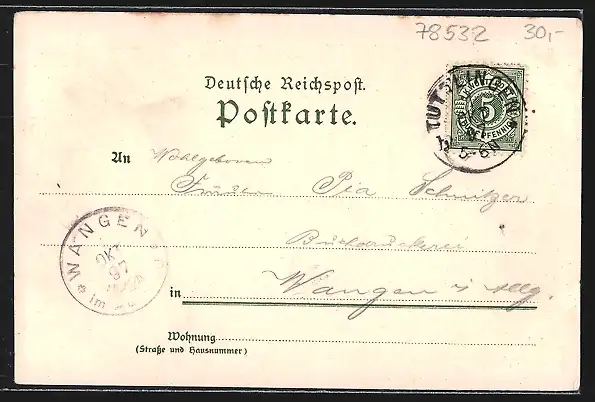 78532 30,-
Deutsche Reichspost.
Postkarte.
TUTTLINGEN
5
PFENNIG
5-6N
An Wohlgeboren
Pia Schnitzer
Buchdruckerei
WANGEN
OKT
97
im
in Wangen i. Allg.
Wohnung
(Straße und Hausnummer)